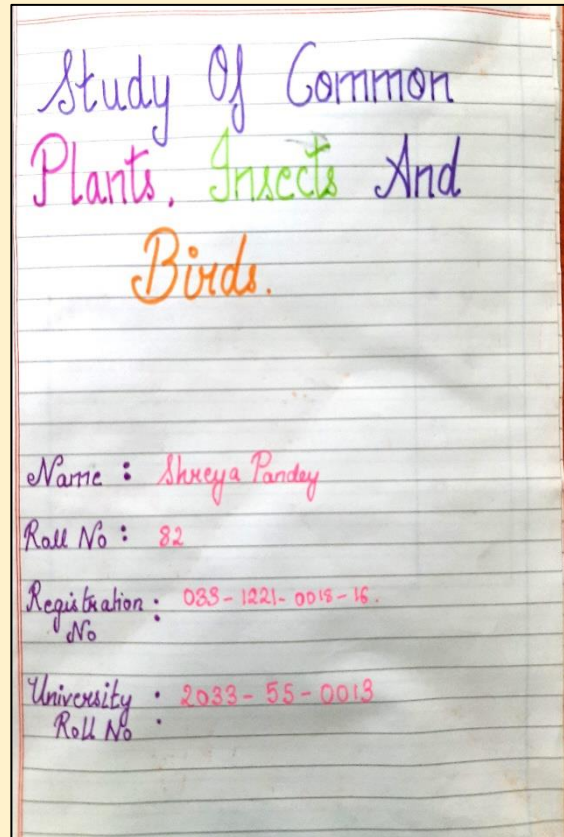 Study Of Common
Plants, Insects And
Birds.
Name : Shreya Pandey
Roll No : 82
Registration : 033-1221-0018-16.
No
University : 2033-55-0013
Roll No